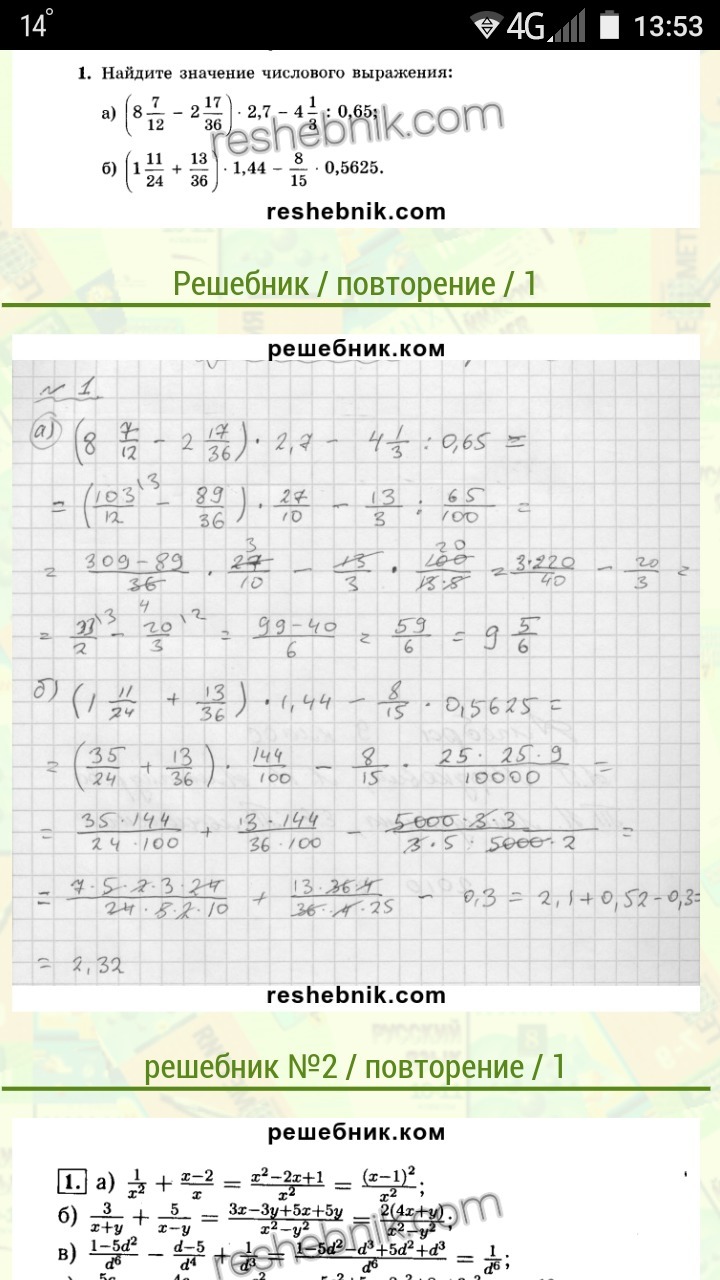 14° 4G 13:53
1. Найдите значение числового выражения:
а) (8 7/12 − 2 17/36) · 2,7 − 4 1/3 : 0,65;
reshebnik.com
б) (1 11/24 + 13/36) · 1,44 − 8/15 · 0,5625.
reshebnik.com
Решебник / повторение / 1
решебник.ком
№ 1
а) (8 7/12 − 2 17/36) · 2,7 − 4 1/3 : 0,65 =
= (103/12 \3 − 89/36) · 27/10 − 13/3 : 65/100 =
= 309−89/36 4 · 27 3/10 − 13/3 · 100 20/13·5 = 3·220/40 − 20/3 =
= 33/2 \3 − 20/3 \2 = 99−40/6 = 59/6 = 9 5/6
б) (1 11/24 + 13/36) · 1,44 − 8/15 · 0,5625 =
= (35/24 + 13/36) · 144/100 − 8/15 · 25·25·9/10000 =
= 35·144/24·100 + 13·144/36·100 − 5000·3·3/3·5·5000·2 =
= 7·5·2·3·24/24·5·2·10 + 13·36·4/36·4·25 − 0,3 = 2,1+0,52−0,3=
= 2,32
reshebnik.com
решебник №2 / повторение / 1
решебник.ком
1. а) 1/x² + x−2/x = x²−2x+1/x² = (x−1)²/x²;
б) 3/x+y + 5/x−y = 3x−3y+5x+5y/x²−y² = 2(4x+y)/x²−y²;
reshebnik.com
в) 1−5d²/d⁶ − d−5/d⁴ + 1/d³ = 1−5d²−d³+5d²+d³/d⁶ = 1/d⁶;